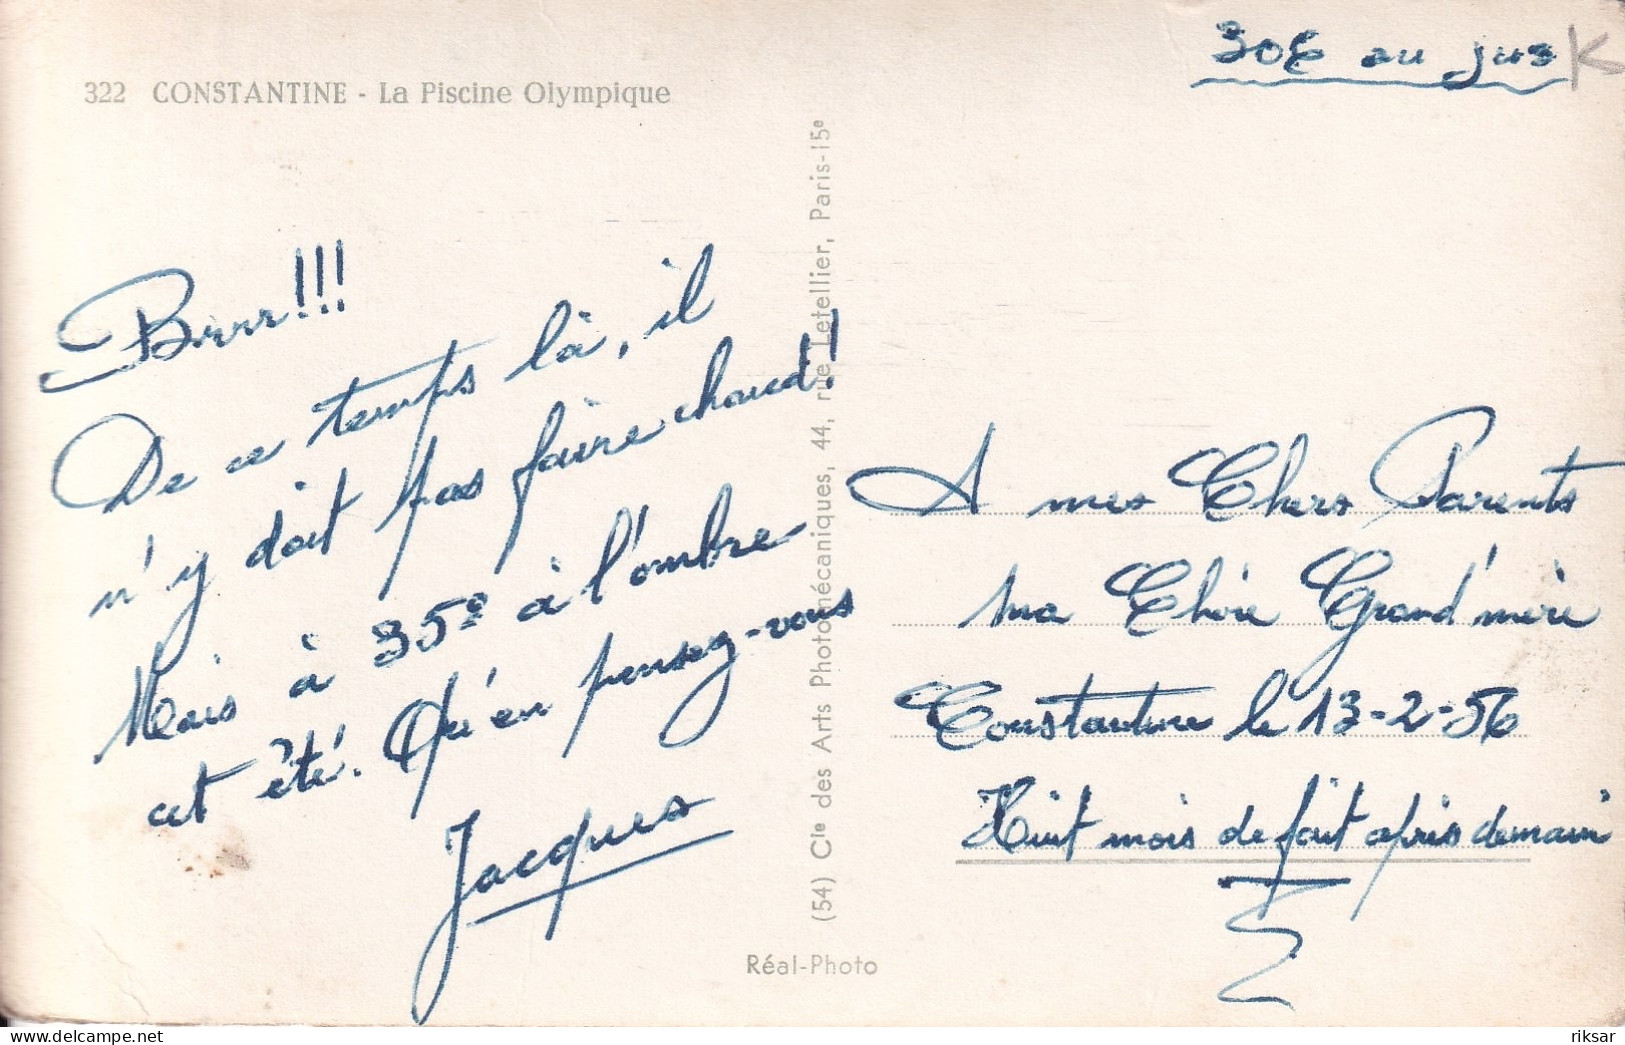 30€ au jus K
322 CONSTANTINE - La Piscine Olympique
Brrrr!!!
De ce temps là, il
n'y doit pas faire chaud!
Mais à 35° à l'ombre
cet été. Qu'en pensez-vous
Jacques
(54) Cie des Arts Photomécaniques, 44, rue Letellier, Paris-15e
Réal-Photo
A mes Chers Parents
ma Chère Grand'mère
Constantine le 13-2-56
Huit mois de fait après demain
riksar